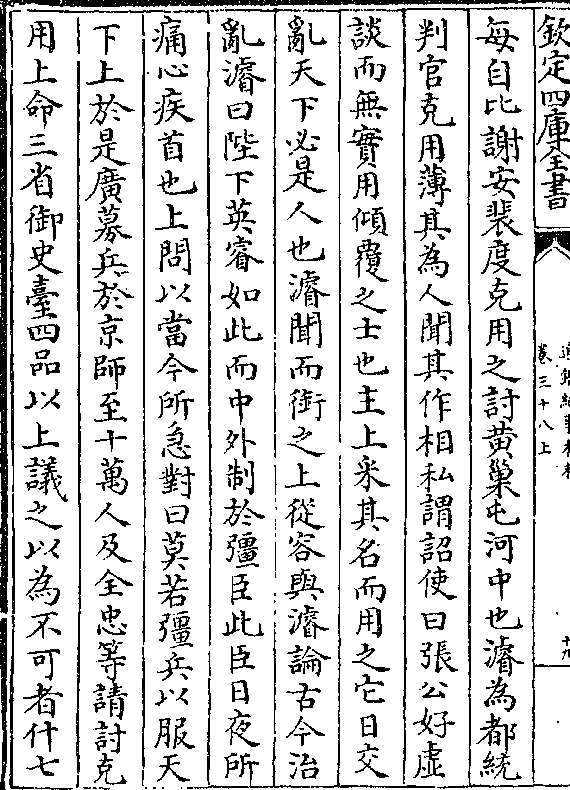 欽定四庫全書
通鑑紀事本末
卷三十八上
每自比謝安裴度克用之討黄巢屯河中也濬為都統
判官克用薄其為人聞其作相私謂詔使曰張公好虛
談而無實用傾覆之士也主上采其名而用之它日交
亂天下必是人也濬聞而銜之上從容與濬論古今治
亂濬曰陛下英睿如此而中外制於彊臣此臣日夜所
痛心疾首也上問以當今所急對曰莫若彊兵以服天
下上於是廣募兵於京師至十萬人及全忠等請討克
用上命三省御史臺四品以上議之以為不可者什七